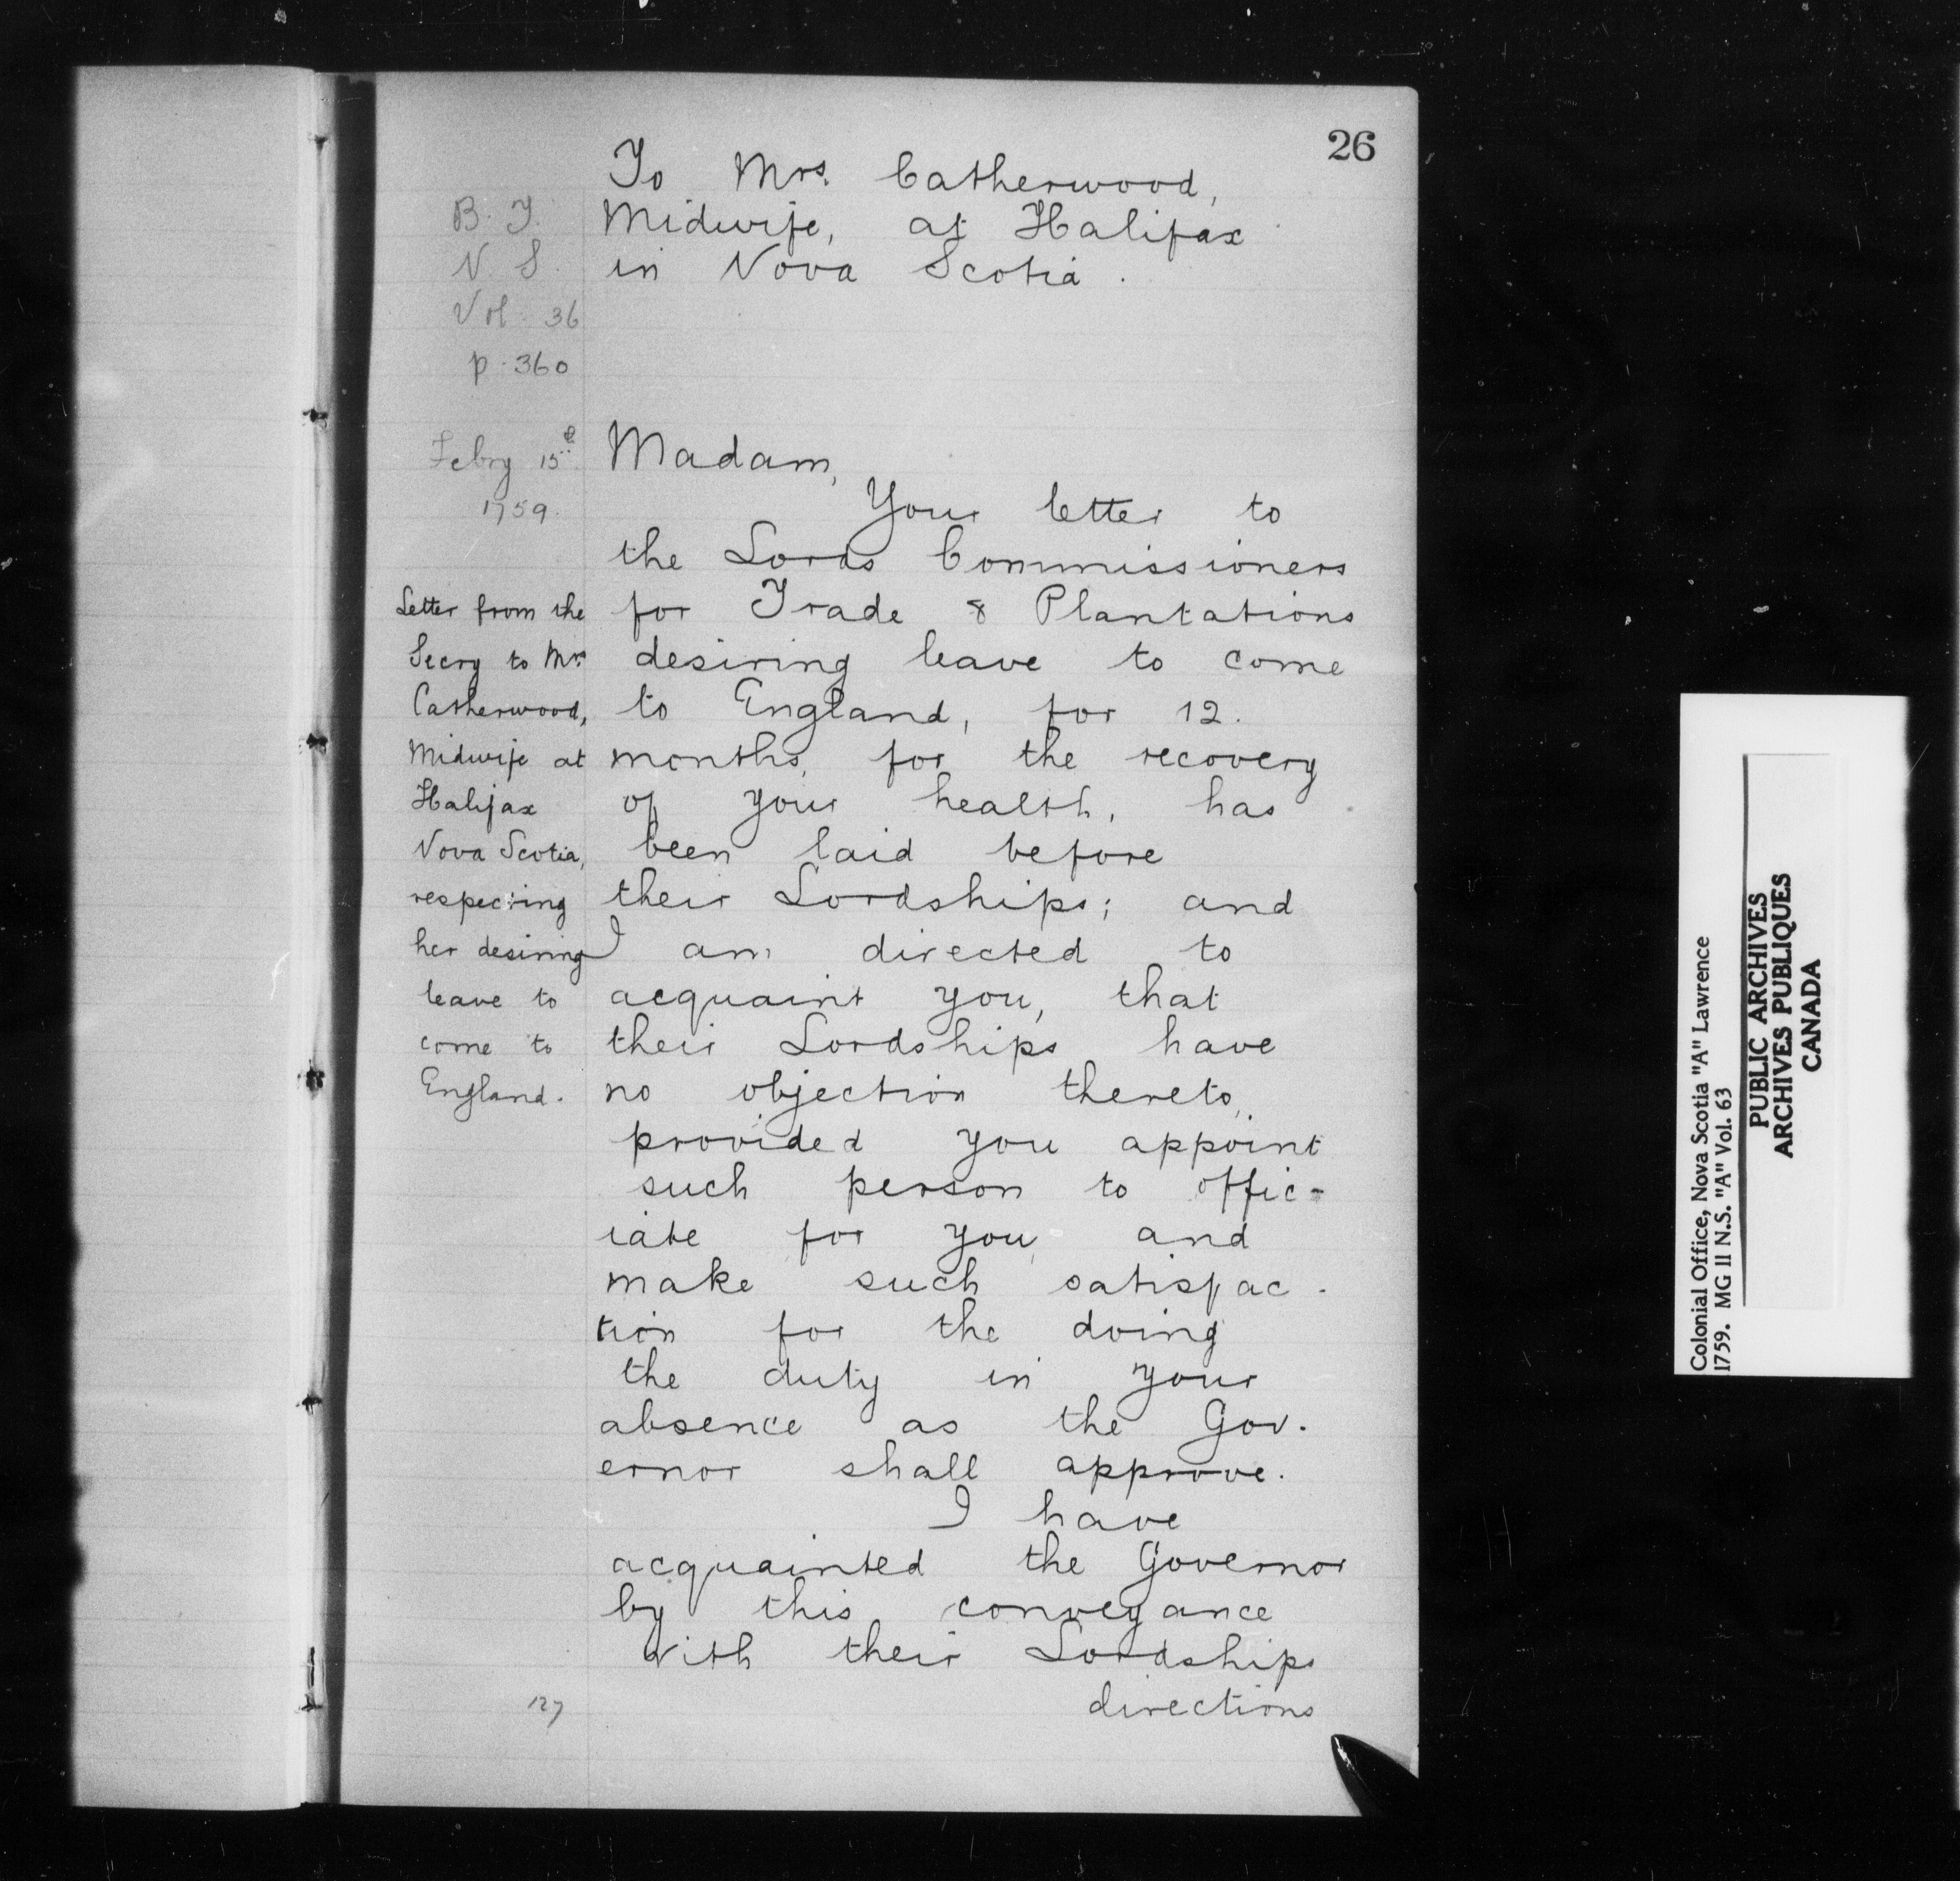 26
To Mrs. Catherwood,
Midwife, at Halifax
in Nova Scotia.
B. T.
N. S.
Vol. 36
p. 360
Febry 15th
1759.
Letter from the
Secry to Mrs
Catherwood,
Midwife at
Halifax
Nova Scotia,
respecting
her desiring
leave to
come to
England.
Madam,
Your letter to
the Lords Commissioners
for Trade & Plantations
desiring leave to come
to England, for 12.
months, for the recovery
of your health, has
been laid before
their Lordships; and
I am directed to
acquaint you, that
their Lordships have
no objection thereto,
provided you appoint
such person to offic-
iate for you and
make such satisfac-
tion for the doing
the duty in your
absence as the Gov-
ernor shall approve.
I have
acquainted the Governor
by this conveyance
with their Lordships
directions
127
Colonial Office, Nova Scotia "A" Lawrence
1759. MG II N.S. "A" Vol. 63
PUBLIC ARCHIVES
ARCHIVES PUBLIQUES
CANADA